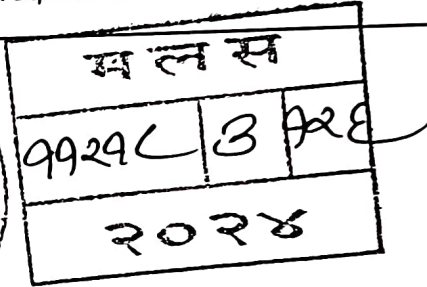 म ल स
११२१८ ३ १२६
२०२४